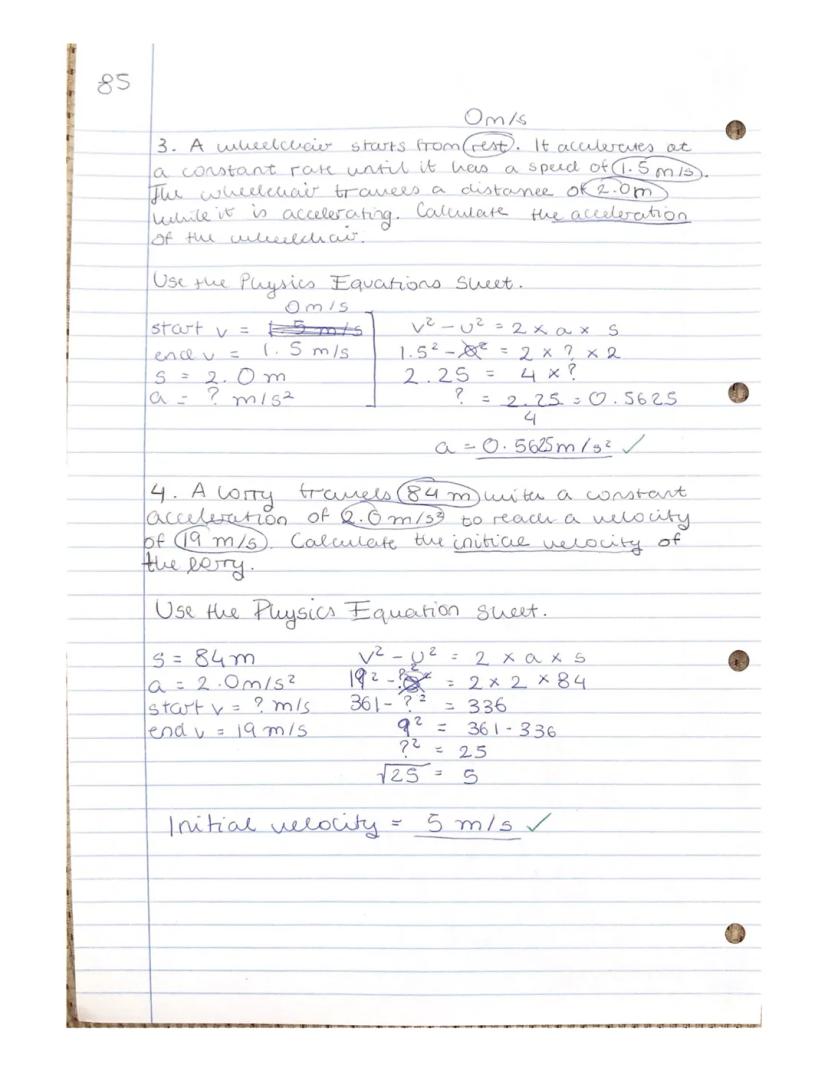 85
0m/s
3. A wheelchair starts from rest. It accelerates at
a constant rate until it has a speed of 1.5 m/s.
The wheelchair travels a distance of 2.0m
while it is accelerating. Calculate the acceleration
of the wheelchair.
Use the Physics Equations Sheet.
0m/s
start v = 1.5 m/s
end v = 1.5 m/s
s = 2.0m
a = ? m/s²
v² - u² = 2 x a x s
1.5² - 0² = 2 x ? x 2
2.25 = 4 x ?
? = 2.25 = 0.5625
4
a = 0.5625m/s² ✓
4. A lorry travels 84 m with a constant
acceleration of 2.0m/s² to reach a velocity
of 19 m/s. Calculate the initial velocity of
the lorry.
Use the Physics Equation Sheet.
s = 84m
a = 2.0m/s²
start v = ? m/s
end v = 19 m/s
v² - u² = 2 x a x s
19² - ?² = 2 x 2 x 84
361 - ?² = 336
?² = 361 - 336
?² = 25
√25 = 5
Initial velocity = 5 m/s ✓